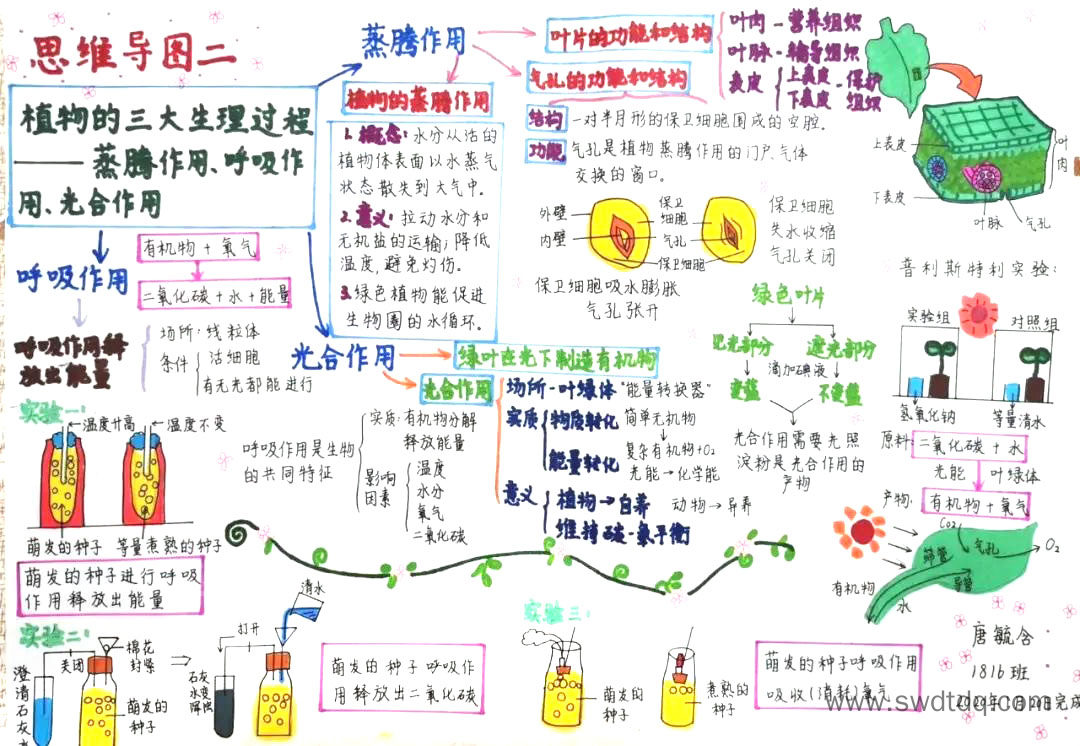 思维导图二
植物的三大生理过程
——蒸腾作用、呼吸作
用、光合作用
蒸腾作用
叶片的功能和结构
叶肉-营养组织
叶脉-输导组织
表皮
上表皮-保护
下表皮 组织
气孔的功能和结构
结构
一对半月形的保卫细胞围成的空腔.
功能
气孔是植物蒸腾作用的门户、气体
交换的窗口。
上表皮
下表皮
叶肉
叶脉
气孔
植物的蒸腾作用
1.概念:水分从活的
植物体表面以水蒸气
状态散失到大气中.
2.意义:拉动水分和
无机盐的运输;降低
温度,避免灼伤。
3.绿色植物能促进
生物圈的水循环.
外壁
内壁
保卫
细胞
气孔
保卫细胞
保卫细胞
失水收缩
气孔关闭
保卫细胞吸水膨胀
气孔张开
呼吸作用
有机物+氧气
二氧化碳+水+能量
呼吸作用解
放出能量
场所:线粒体
条件
活细胞
有无光都能进行
实验一:
温度升高
温度不变
萌发的种子
等量煮熟的种子
萌发的种子进行呼吸
作用释放出能量
呼吸作用是生物
的共同特征
实质:有机物分解
释放能量
影响
因素
温度
水分
氧气
二氧化碳
光合作用
绿叶在光下制造有机物
光合作用
场所-叶绿体"能量转换器"
实质
物质转化
简单无机物
复杂有机物+O₂
能量转化
光能→化学能
意义
植物→自养
动物→异养
维持碳-氧平衡
绿色叶片
见光部分
遮光部分
滴加碘液
变蓝
不变蓝
光合作用需要光照
淀粉是光合作用的
产物
普利斯特利实验:
实验组
对照组
氢氧化钠
等量清水
原料:
二氧化碳+水
光能
叶绿体
产物:
有机物+氧气
CO₂
气孔
O₂
筛管
导管
有机物
水
实验二:
关闭
棉花
封紧
澄清石灰水
萌发的
种子
打开
清水
石灰水变
萌发的种子呼吸作
用释放出二氧化碳
实验三:
萌发的
种子
煮熟的
种子
萌发的种子呼吸作用
吸收(消耗)氧气
唐毓含
1816班
完成
www.swdtdq.com